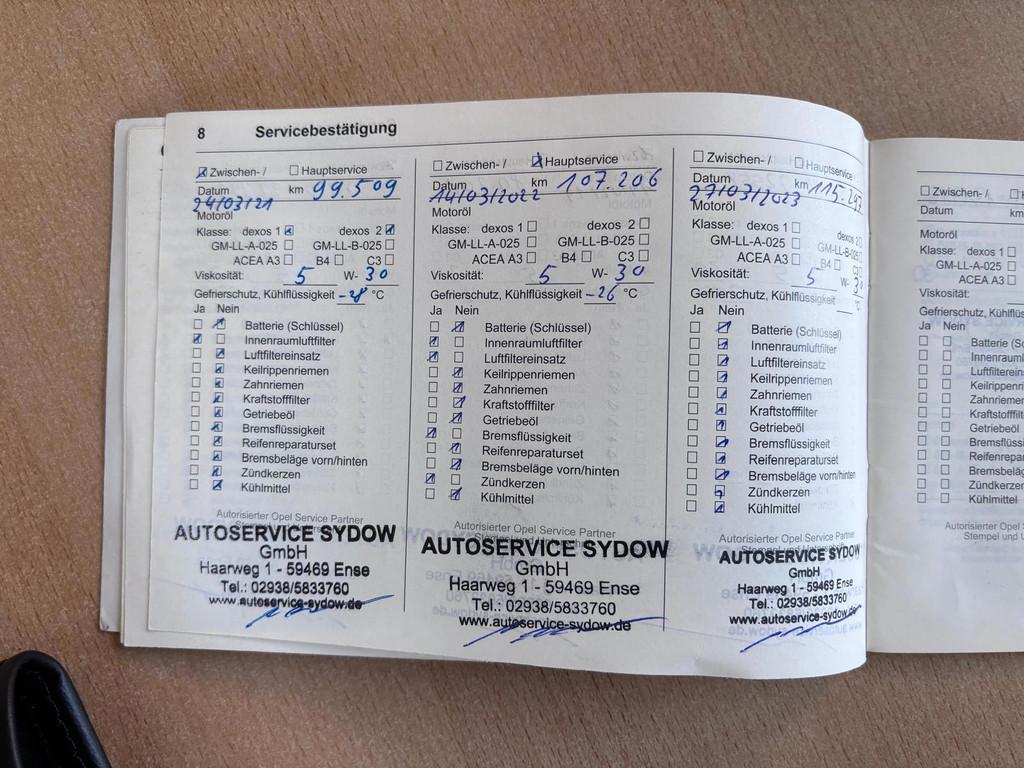 8 Servicebestätigung
☒ Zwischen- / ☐ Hauptservice
Datum km 99.509
24/03/21
Motoröl
Klasse: dexos 1 ☒ dexos 2 ☒
GM-LL-A-025 ☐ GM-LL-B-025 ☐
ACEA A3 ☐ B4 ☐ C3 ☐
Viskosität: 5 W- 30
Gefrierschutz, Kühlflüssigkeit -28 °C
Ja Nein
☐ ☒ Batterie (Schlüssel)
☒ ☐ Innenraumluftfilter
☐ ☒ Luftfiltereinsatz
☐ ☒ Keilrippenriemen
☐ ☒ Zahnriemen
☐ ☒ Kraftstofffilter
☐ ☒ Getriebeöl
☐ ☒ Bremsflüssigkeit
☐ ☒ Reifenreparaturset
☐ ☒ Bremsbeläge vorn/hinten
☐ ☒ Zündkerzen
☐ ☒ Kühlmittel
Autorisierter Opel Service Partner
AUTOSERVICE SYDOW
GmbH
Haarweg 1 - 59469 Ense
Tel.: 02938/5833760
www.autoservice-sydow.de
☐ Zwischen- / ☒ Hauptservice
Datum km 107.206
14/03/2022
Motoröl
Klasse: dexos 1 ☐ dexos 2 ☐
GM-LL-A-025 ☐ GM-LL-B-025 ☐
ACEA A3 ☐ B4 ☐ C3 ☐
Viskosität: 5 W- 30
Gefrierschutz, Kühlflüssigkeit -26 °C
Ja Nein
☐ ☒ Batterie (Schlüssel)
☒ ☐ Innenraumluftfilter
☒ ☐ Luftfiltereinsatz
☐ ☒ Keilrippenriemen
☐ ☒ Zahnriemen
☐ ☒ Kraftstofffilter
☐ ☒ Getriebeöl
☒ ☐ Bremsflüssigkeit
☐ ☒ Reifenreparaturset
☐ ☒ Bremsbeläge vorn/hinten
☒ ☐ Zündkerzen
☐ ☒ Kühlmittel
Autorisierter Opel Service Partner
Stempel und
AUTOSERVICE SYDOW
GmbH
Haarweg 1 - 59469 Ense
Tel.: 02938/5833760
www.autoservice-sydow.de
☐ Zwischen- / ☐ Hauptservice
Datum km 115.297
27/03/2023
Motoröl
Klasse: dexos 1 ☐ dexos 2 ☐
GM-LL-A-025 ☐ GM-LL-B-025
ACEA A3 ☐ B4 ☐ C3 ☐
Viskosität: 5 W- 30
Gefrierschutz, Kühlflüssigkeit °C
Ja Nein
☐ ☒ Batterie (Schlüssel)
☐ ☒ Innenraumluftfilter
☐ ☒ Luftfiltereinsatz
☐ ☒ Keilrippenriemen
☐ ☒ Zahnriemen
☐ ☒ Kraftstofffilter
☐ ☒ Getriebeöl
☐ ☒ Bremsflüssigkeit
☐ ☒ Reifenreparaturset
☐ ☒ Bremsbeläge vorn/hinten
☐ ☒ Zündkerzen
☐ ☒ Kühlmittel
Autorisierter Opel Service Partner
Stempel und
AUTOSERVICE SYDOW
GmbH
Haarweg 1 - 59469 Ense
Tel.: 02938/5833760
www.autoservice-sydow.de
☐ Zwischen- / ☐ H
Datum km
Motoröl
Klasse: dexos 1 ☐
GM-LL-A-025 ☐
ACEA A3 ☐
Viskosität:
Gefrierschutz, Kühlflüs
Ja Nein
☐ ☐ Batterie (Sc
☐ ☐ Innenrauml
☐ ☐ Luftfilterein
☐ ☐ Keilrippenri
☐ ☐ Zahnriemen
☐ ☐ Kraftstofffilt
☐ ☐ Getriebeöl
☐ ☐ Bremsflüssi
☐ ☐ Reifenrepa
☐ ☐ Bremsbeläg
☐ ☐ Zündkerze
☐ ☐ Kühlmittel
Autorisierter Opel S
Stempel und U